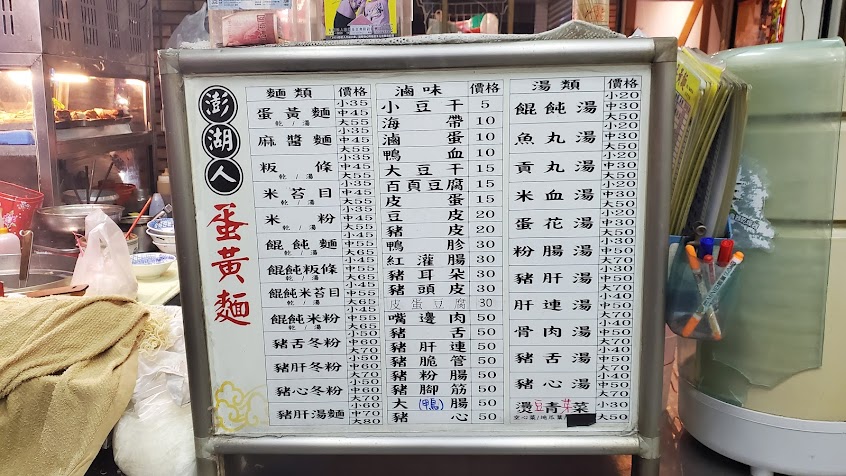 澎湖人
蛋黃麵
麵類 價格
蛋黃麵 乾/湯 小35 中45 大55
麻醬麵 乾/湯 小35 中45 大55
粄條 乾/湯 小35 中45 大55
米苔目 乾/湯 小35 中45 大55
米粉 乾/湯 小35 中45 大55
餛飩麵 乾/湯 小45 中55 大65
餛飩粄條 乾/湯 小45 中55 大65
餛飩米苔目 乾/湯 小45 中55 大65
餛飩米粉 乾/湯 小45 中55 大65
豬舌冬粉 小50 中60 大70
豬肝冬粉 小50 中60 大70
豬心冬粉 小50 中60 大70
豬肝湯麵 中70 大80
滷味 價格
小豆干 5
海帶 10
滷蛋 10
鴨血 10
大豆干 15
百頁豆腐 15
皮蛋 15
豆皮 20
豬皮 20
鴨胗 30
紅灌腸 30
豬耳朵 30
豬頭皮 30
皮蛋豆腐 30
嘴邊肉 50
豬舌 50
豬肝連 50
豬脆管 50
豬粉腸 50
豬腳筋 50
大(鴨)腸 50
豬心 50
湯類 價格
餛飩湯 小20 中30 大50
魚丸湯 小20 中30 大50
貢丸湯 小20 中30 大50
米血湯 小20 中30 大50
蛋花湯 小20 中30 大50
粉腸湯 小30 中50 大70
豬肝湯 小30 中50 大70
肝連湯 小40 中50 大70
骨肉湯 小40 中50 大70
豬舌湯 小40 中50 大70
豬心湯 小40 中50 大70
燙青菜 豆芽 空心菜/地瓜葉 小30 大50